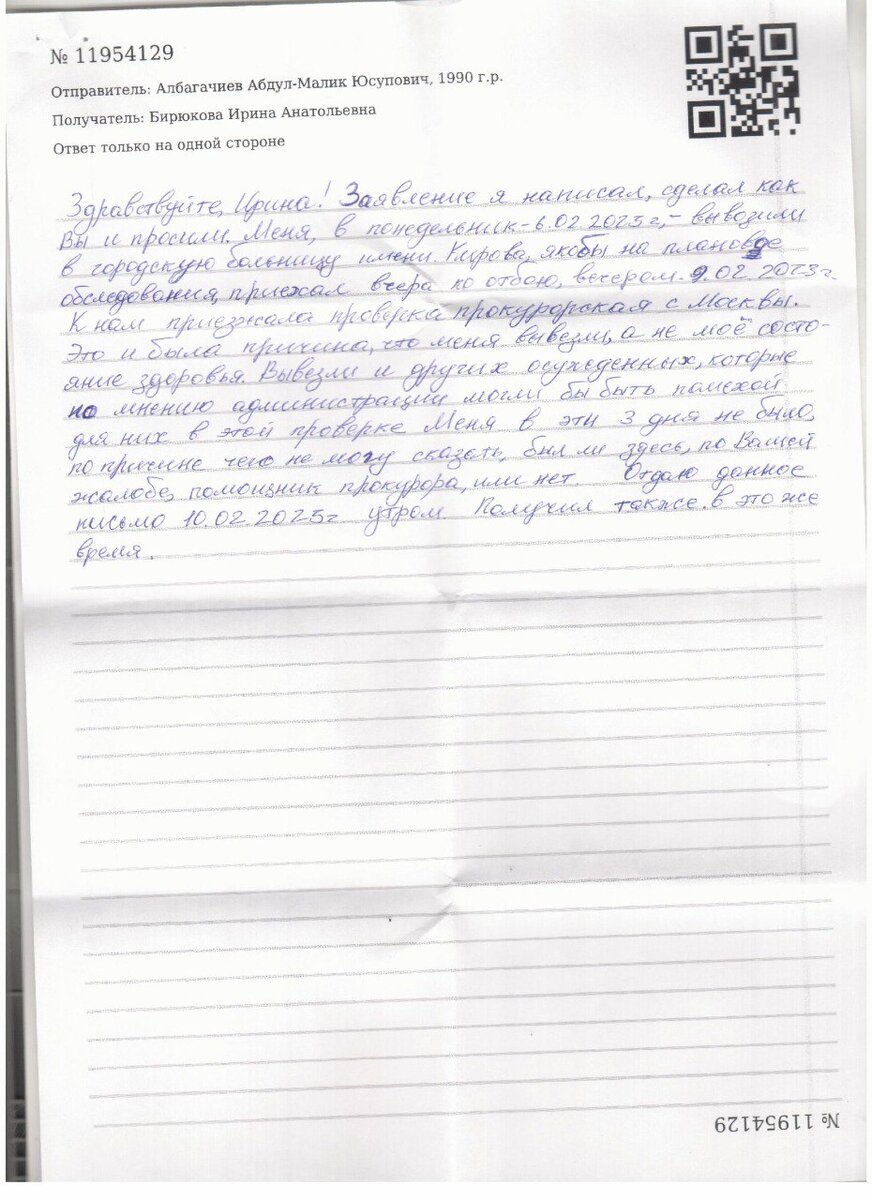 № 11954129
Отправитель: Албагачиев Абдул-Малик Юсупович, 1990 г.р.
Получатель: Бирюкова Ирина Анатольевна
Ответ только на одной стороне
Здравствуйте, Ирина! Заявление я написал, сделал как
Вы и просили. Меня, в понедельник - 6.02.2023г, - вывозили
в городскую больницу имени. Кирова, якобы на плановое
обследования, приехал вчера ко отбою, вечером. 9.02.2023г.
К нам приезжала проверка прокурорская с Москвы.
Это и была причина, что меня вывезли, а не моё состо-
яние здоровья. Вывезли и других осужденных, которые
по мнению администрации могли бы быть помехой
для них в этой проверке Меня в эти 3 дня не было,
по причине чего не могу сказать, был ли здесь, по Вашей
жалобе, помощник прокурора, или нет. Отдаю данное
письмо 10.02.2023г утром. Получил также в это же
время.
№ 11954129